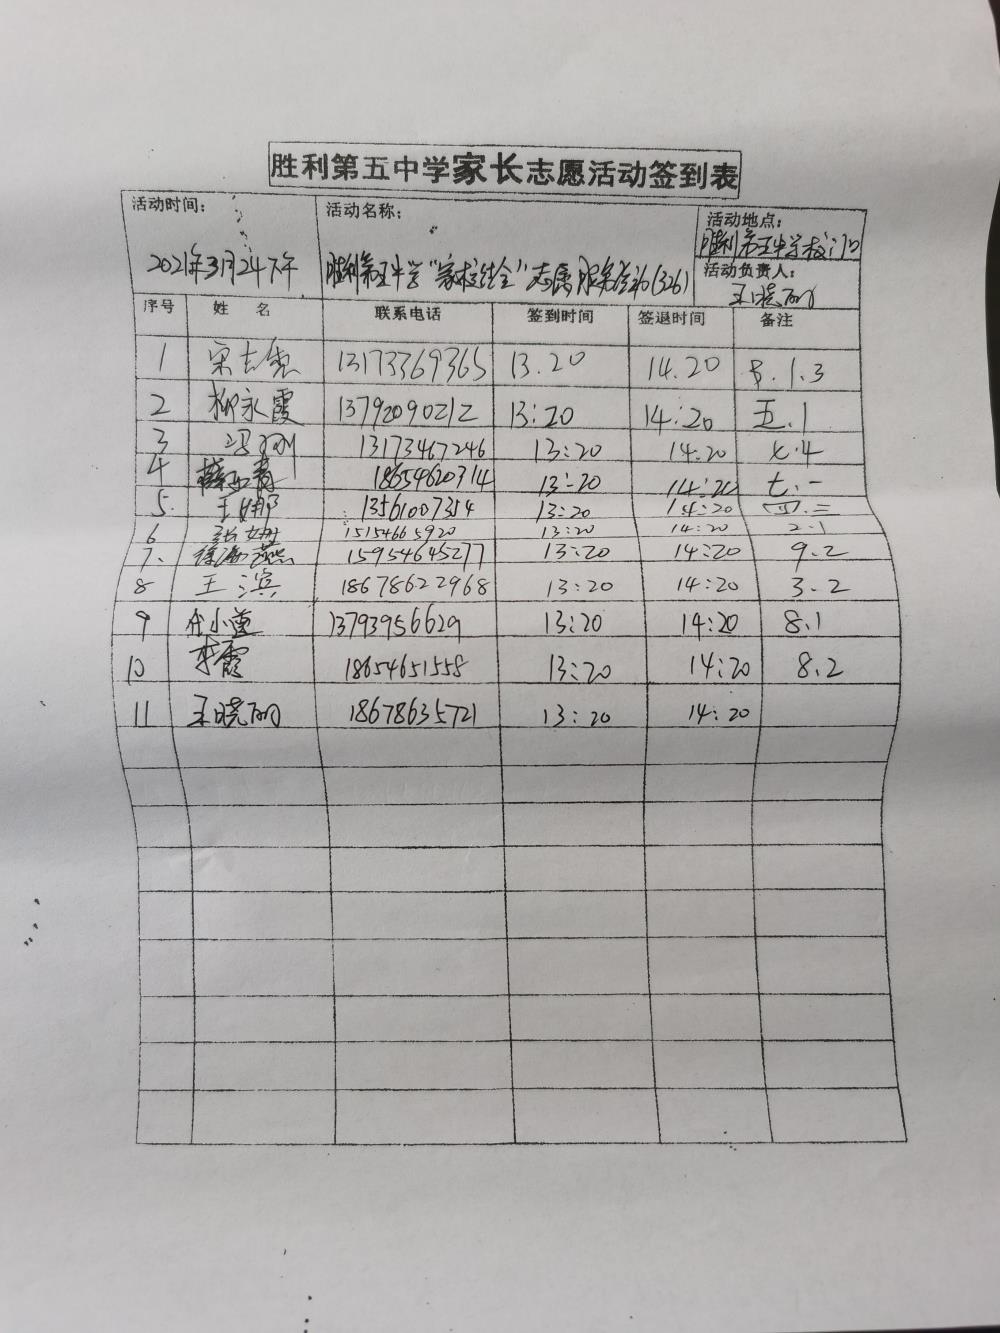 胜利第五中学家长志愿活动签到表
活动时间: 活动名称: 活动地点:
2021年3月24下午 胜利第五中学"家校结合"志愿服务活动(326) 胜利第五中学校门口
活动负责人:
王晓丽
序号 姓名 联系电话 签到时间 签退时间 备注
1 13173369365 13.20 14.20 8.1.3
2 柳永霞 13792090212 13:20 14:20 五.1
3 冯刚 13173467246 13:20 14:20 七.4
4 18654620314 13:20 14:20 七.一
5. 王娜 13561007354 13:20 14:20 四.三
6 15154665920 13:20 14:20 2.1
7. 徐海燕 15954645277 13:20 14:20 9.2
8 王滨 18678622968 13:20 14:20 3.2
9 小莲 13793956629 13:20 14:20 8.1
10 李霞 18654651558 13:20 14:20 8.2
11 王晓丽 18678635721 13:20 14:20